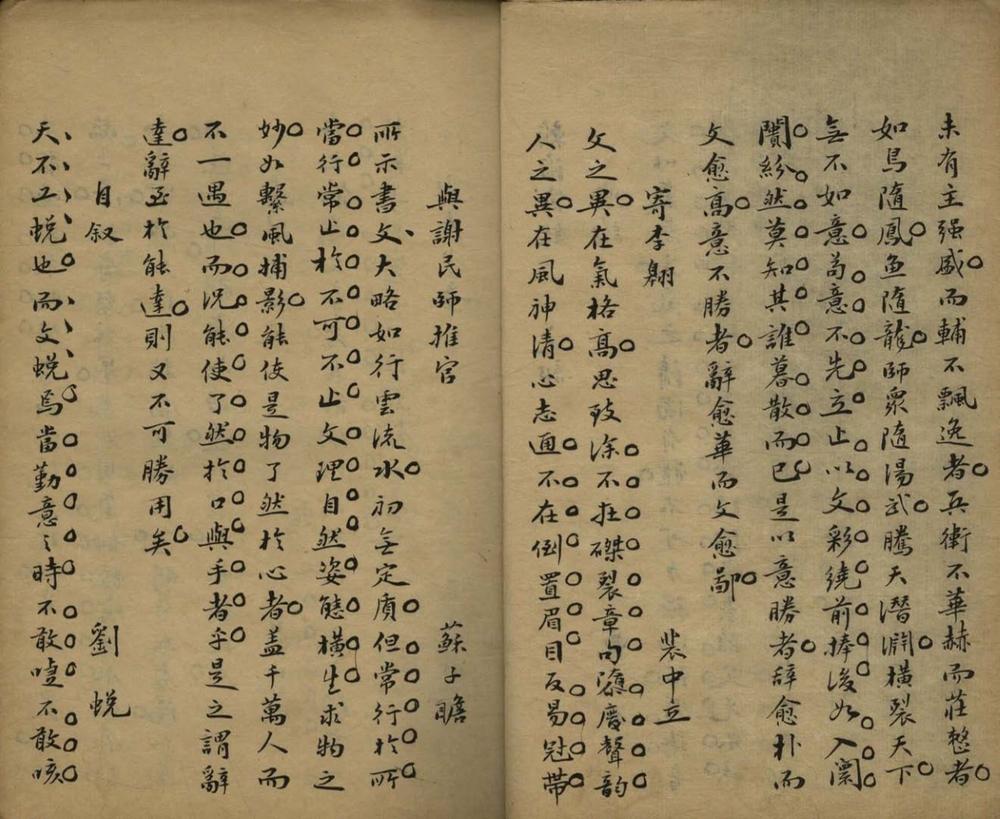 未有主强盛而輔不飄逸者兵衛不華赫而莊整者
如鳥隨鳳魚隨龍師眾隨湯武騰天潛淵橫裂天下
無不如意苟意不先立止以文彩繞前捧後如入闤
闠紛然莫知其誰暮散而已是以意勝者辞愈朴而
文愈高意不勝者辭愈華而文愈鄙
寄李翱 裴中立
文之異在氣格高思致深不在磔裂章句隳廢聲韵
人之異在風神清心志通不在倒置眉目反易冠带
與謝民師推官 蘇子瞻
所示書文大略如行雲流水初無定質但常行於所
當行常止於不可不止文理自然姿態橫生求物之
妙如繫風捕影能使是物了然於心者盖千萬人而
不一遇也而况能使了然於口與手者乎是之謂辭
達辭至於能達則又不可勝用矣
自叙 劉蛻
天不工蛻也而文蛻焉當勤意之時不敢嚏不敢咳